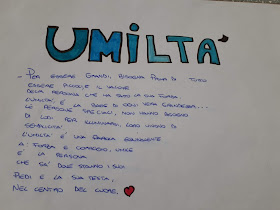 UMILTÀ
- PER ESSERE GRANDI, BISOGNA PRIMA DI TUTTO
ESSERE PICCOLI E IL VALORE
DELLA PERSONA CHE HA SAPUTO LA SUA FORZA
L'UMILTÀ È LA BASE DI OGNI VERA GRANDEZZA...
LE PERSONE SPECIALI, NON HANNO BISOGNO
DI LUCI PER ILLUMINARSI, LORO VIVONO DI
SEMPLICITÀ
L'UMILTÀ È UNA PAROLA EQUIVALENTE
A: FORZA E CORAGGIO, UMILE
È LA PERSONA
CHE SA DOVE SONO I SUOI
PIEDI E LA SUA TESTA:
NEL CENTRO DEL CUORE,